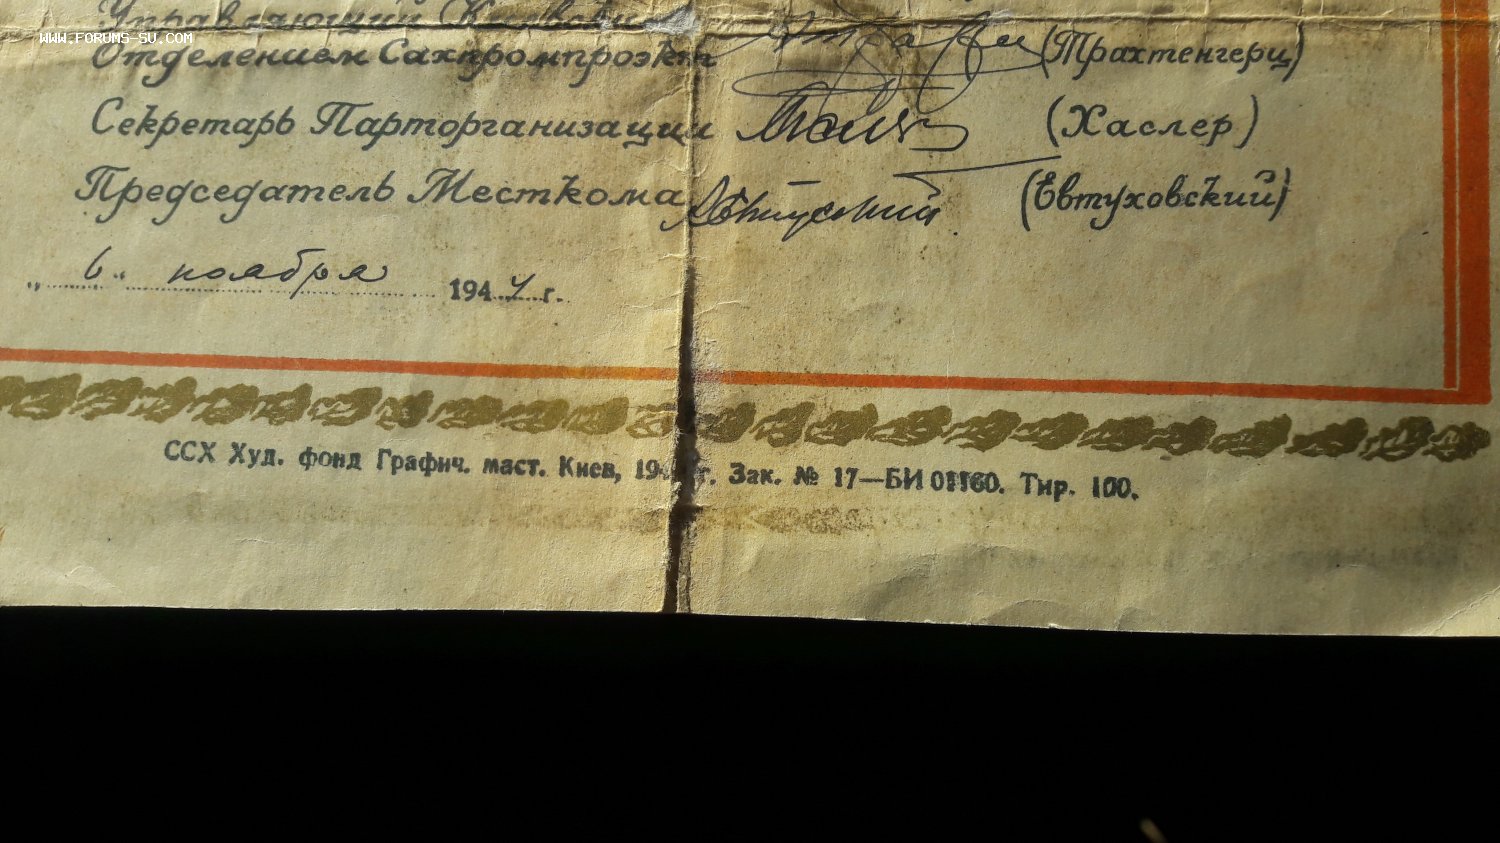 Управляющий Киевским
WWW.FORUMS-SU.COM
Отделением Сахпромпроэкт (Трахтенгерц)
Секретарь Парторганизации (Хаслер)
Председатель Месткома (Евтуховский)
„6“ ноября 1944 г.
ССХ Худ. фонд Графич. маст. Киев, 19 г. Зак. № 17—БИ 01160. Тир. 100.